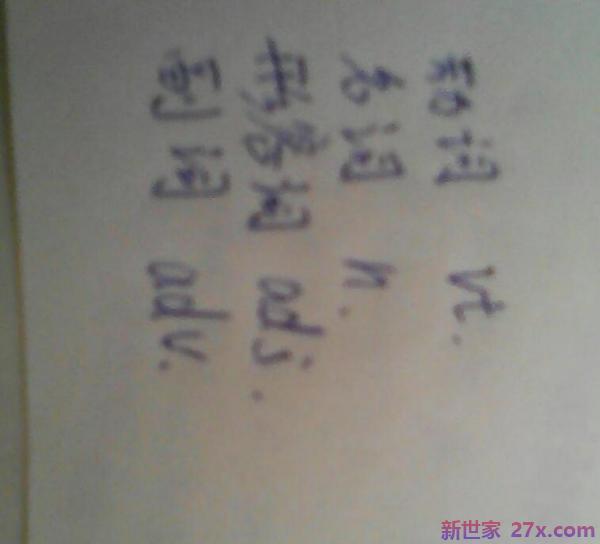 动词 vt.
名词 n.
形容词 adj.
副词 adv.
新世家 27x.com